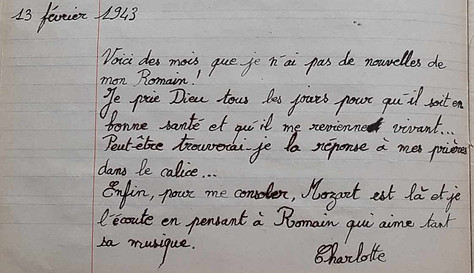 13 février 1943
Voici des mois que je n'ai pas de nouvelles de
mon Romain !
Je prie Dieu tous les jours pour qu'il soit en
bonne santé et qu'il me revienne vivant...
Peut-être trouverai-je la réponse à mes prières
dans le calice...
Enfin, pour me consoler, Mozart est là et je
l'écoute en pensant à Romain qui aime tant
sa musique.
Charlotte